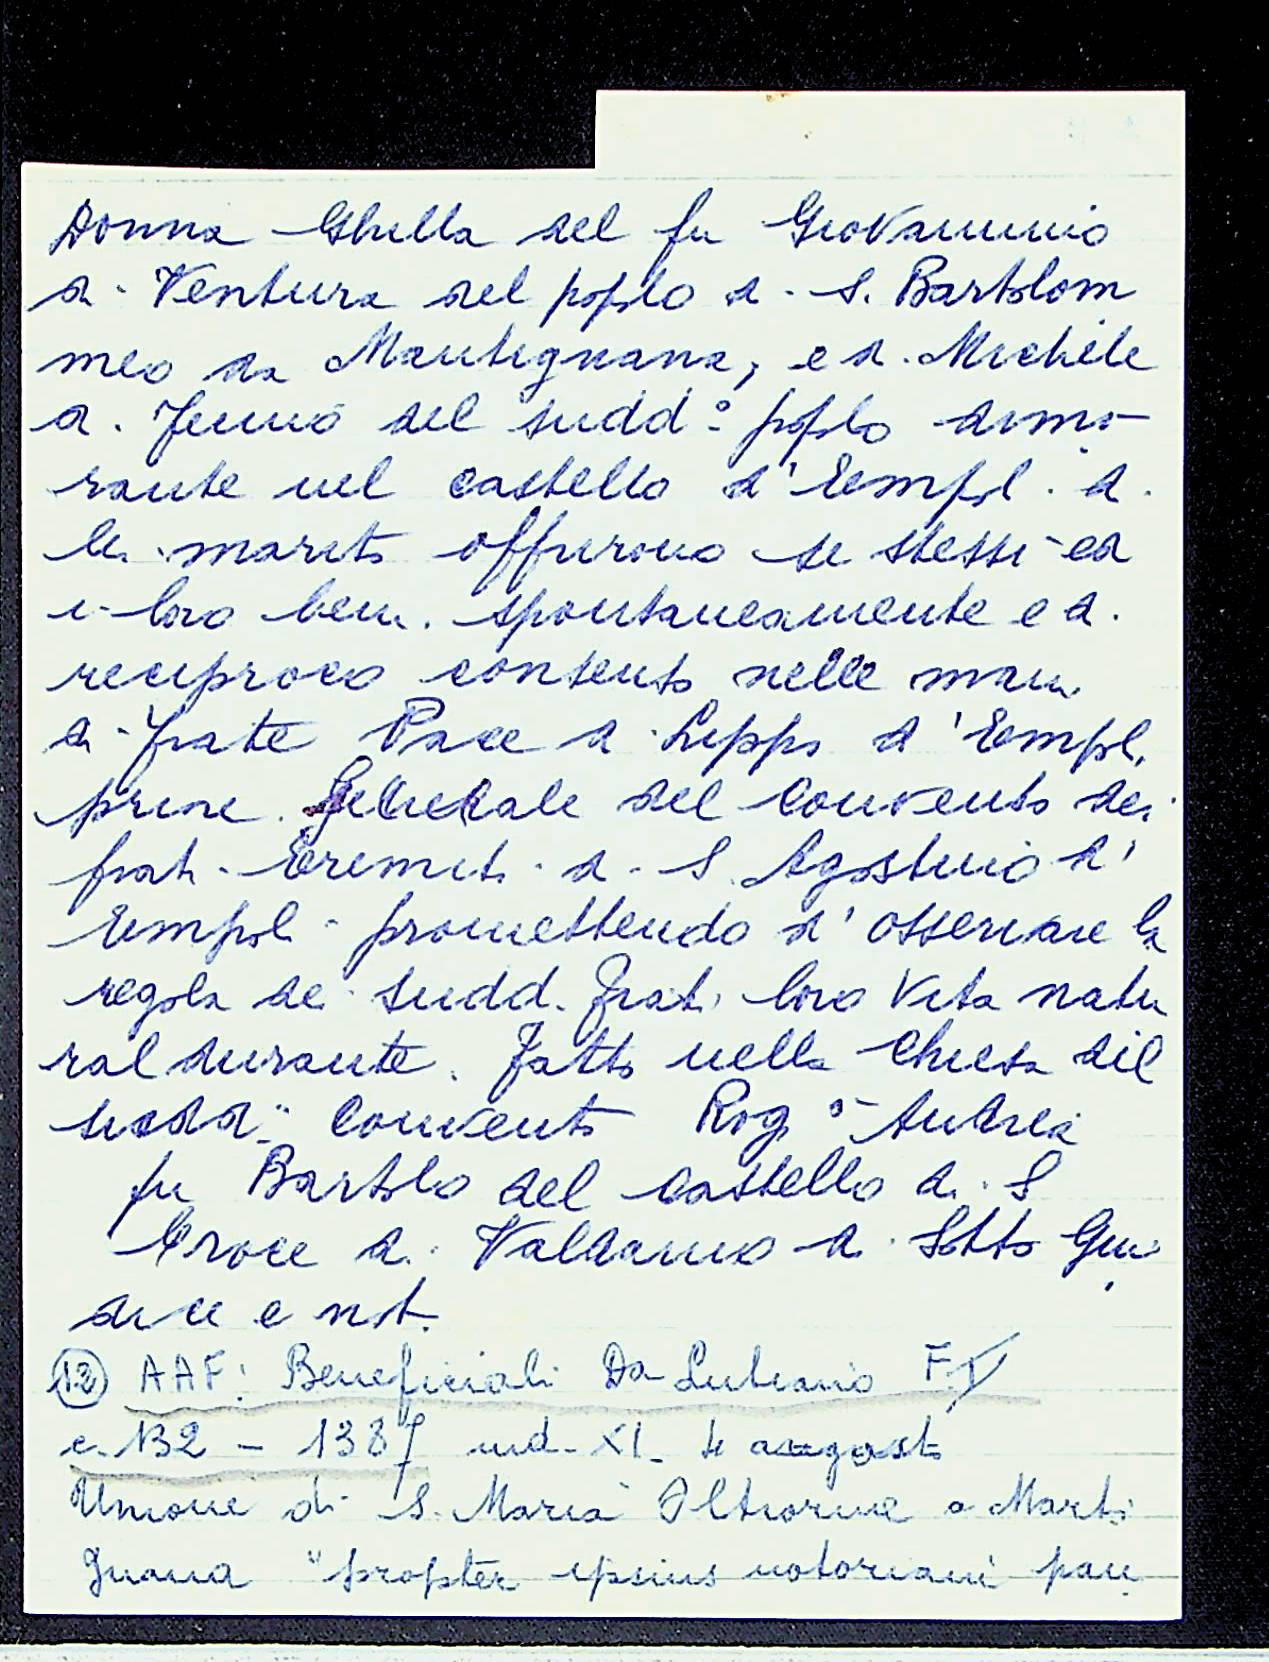 Donna Ghilla del fu Giovannino
di Ventura del popolo di S. Bartolom
meo da Mantignana, e d. Michele
di Jenno del sudd.º popolo dimo-
rante nel castello d'Empoli di
lei marito offrirono se stessi ed
i loro beni spontaneamente e di
reciproco consenso nelle mani
di frate Pace di Lippo d'Empoli
priore Generale del Convento dei
frati Eremiti di S. Agostino d'
Empoli promettendo d'osservare la
regola dei sudd. frati loro vita natu
ral durante. Fatto nella Chiesa del
sudd.º Convento Rog.º Andrea
fu Bartolo del castello di S
Croce di Valdarno di Sotto Giu
dice e not.
(12) AAF: Beneficiali Da Lutiano F. I
c. 132 - 1387 ind. XI agosto
Unione di S. Maria Oltrorme a Marti
gnana "propter ipsius notoriam pau